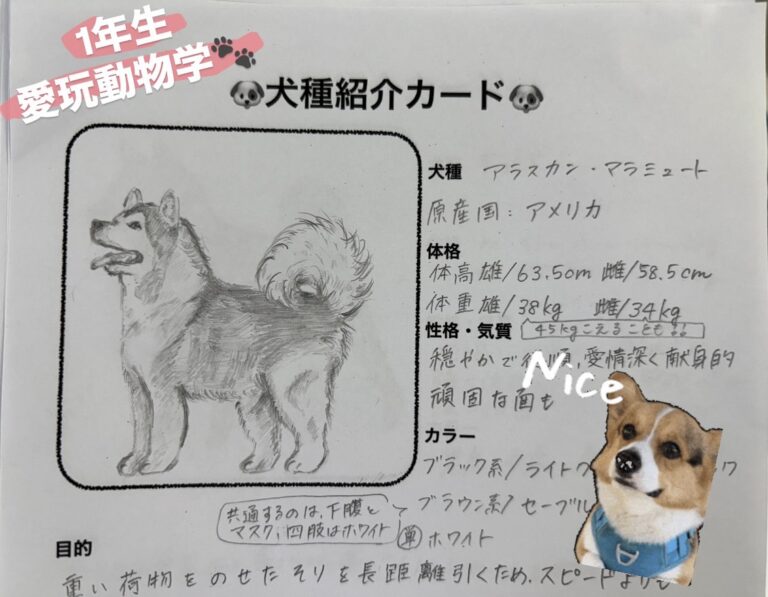 1年生
愛玩動物学
犬種紹介カード
犬種 アラスカン・マラミュート
原産国：アメリカ
体格
体高雄/63.5cm 雌/58.5cm
体重雄/38kg 雌/34kg
性格・気質 45kgこえることも!!
穏やかで 順、愛情深く献身的
Nice
頑固な面も
カラー
ブラック系/ライト
共通するのは、下腹と
マスク、四肢はホワイト
ブラウン系/セーブル
単 ホワイト
目的
重い荷物をのせたそりを長距離引くため。スピードよりも